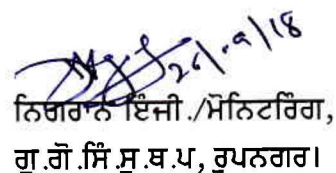 26/9/18
ਨਿਗਰਾਨ ਇੰਜੀ./ਮੋਨਿਟਰਿੰਗ,
ਗੁ.ਗੋ.ਸਿੰ.ਸੁ.ਥ.ਪ, ਰੂਪਨਗਰ।